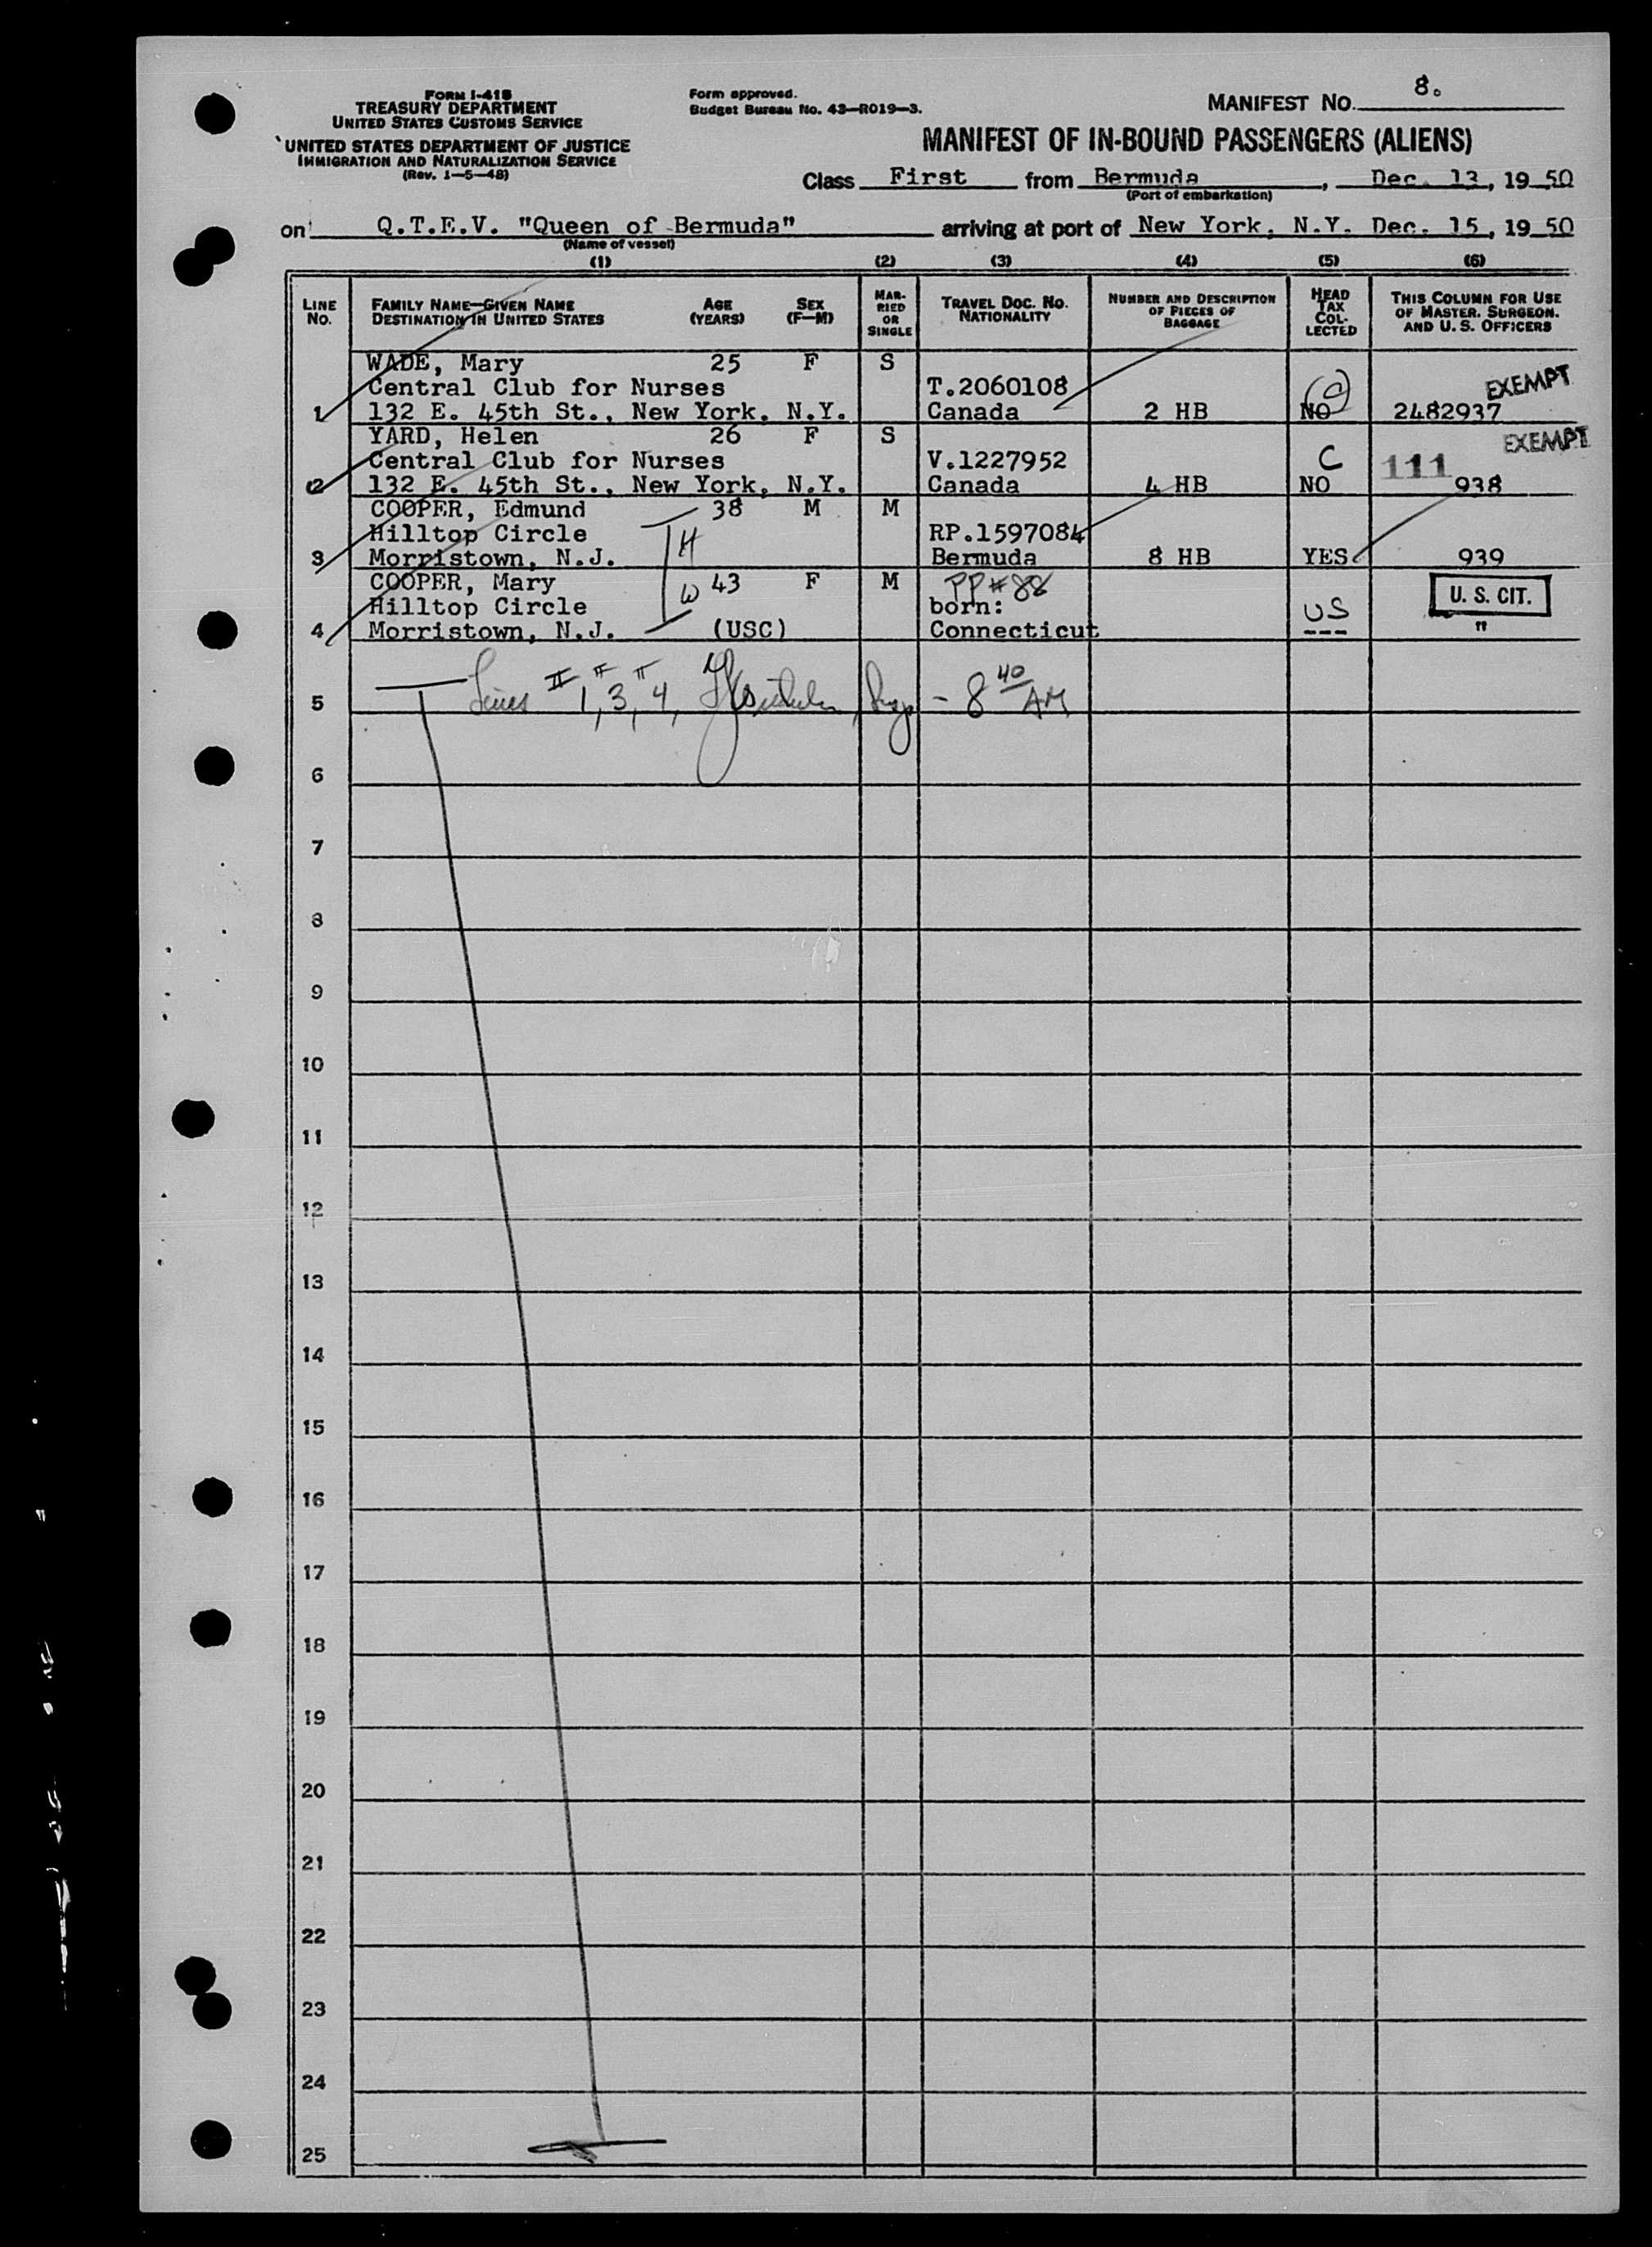 FORM I-418
TREASURY DEPARTMENT
UNITED STATES CUSTOMS SERVICE
UNITED STATES DEPARTMENT OF JUSTICE
IMMIGRATION AND NATURALIZATION SERVICE
(Rev. 1-5-48)
Form approved.
Budget Bureau No. 43-R019-3.
MANIFEST NO. 8.
MANIFEST OF IN-BOUND PASSENGERS (ALIENS)
Class First from Bermuda, Dec. 13, 1950
(Port of embarkation)
on Q.T.E.V. "Queen of Bermuda" arriving at port of New York, N.Y. Dec. 15, 1950
(Name of vessel)
(1) (2) (3) (4) (5) (6)
LINE NO.
FAMILY NAME-GIVEN NAME
DESTINATION IN UNITED STATES
AGE (YEARS)
SEX (F-M)
MARRIED OR SINGLE
TRAVEL DOC. NO. NATIONALITY
NUMBER AND DESCRIPTION OF PIECES OF BAGGAGE
HEAD TAX COLLECTED
THIS COLUMN FOR USE OF MASTER. SURGEON. AND U. S. OFFICERS
WADE, Mary 25 F S
Central Club for Nurses T.2060108 EXEMPT
1 132 E. 45th St., New York, N.Y. Canada 2 HB NO 2482937
YARD, Helen 26 F S EXEMPT
Central Club for Nurses V.1227952 C 111
2 132 E. 45th St., New York, N.Y. Canada 4 HB NO 938
COOPER, Edmund 38 M M
Hilltop Circle H RP.1597084
3 Morristown, N.J. Bermuda 8 HB YES 939
COOPER, Mary W 43 F M PP#88 U. S. CIT.
Hilltop Circle born: US
4 Morristown, N.J. (USC) Connecticut --- "
5 Lines # 1, # 3, # 4, Insp - 8 40 AM
6
7
8
9
10
11
12
13
14
15
16
17
18
19
20
21
22
23
24
25